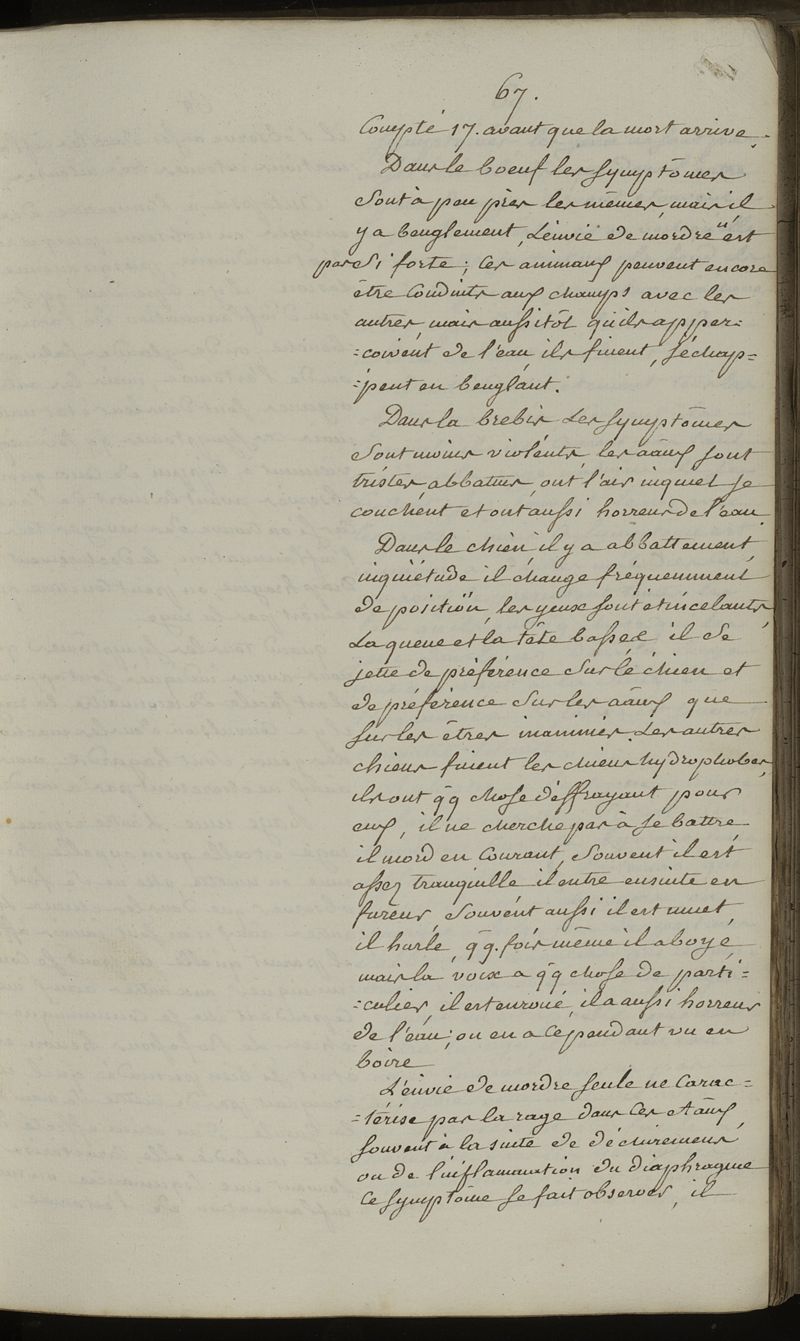 67.
Compté 17. avant que la mort arrive.
Dans le boeuf les symptômes
sont à peu près les mêmes, mais il
y a beuglement, L'envie de mordre n'est
pas si forte; ces animaux peuvent encore
être Conduits aux champs avec les
autres, mais aussitôt qu'ils apper=
=coivent de l'eau ils fuient, s'échap=
=pent en beuglant.
Dans la brebis Les symptômes
sont moins violents, les aāux sont
tristes abbattus, ont l'air inquiet se
couchent et ont aussi horreur de l'eau.
Dans le chien il y a abbattement,
inquiétude il change fréquemment
de position, les yeux sont étincelants,
La queue et la tête basse il se
jette de préférence sur le chien et
de préférence sur les aāux que
sur les êtres inanimés. Les autres
chiens fuient les chiens hydrophobes,
ils ont qq chose d'éffrayant pour
eux, il ne cherche pas à se battre,
il mord en Courant, souvent il est
assez tranquille il entre ensuite en
fureur, souvent aussi il est muet,
il hurle, qq. fois même il aboye
mais la voix a qq chose de parti=
=culier, il est enroué, il a aussi horreur
de l'eau; on en a cependant vu en
boire
L'envie de mordre seule ne Carac=
=térise pas la rage dans Ces Aāux
souvent à la suite de déchirement,
ou de l'inflammation du diaphragme
Ce symptôme se fait observer, il